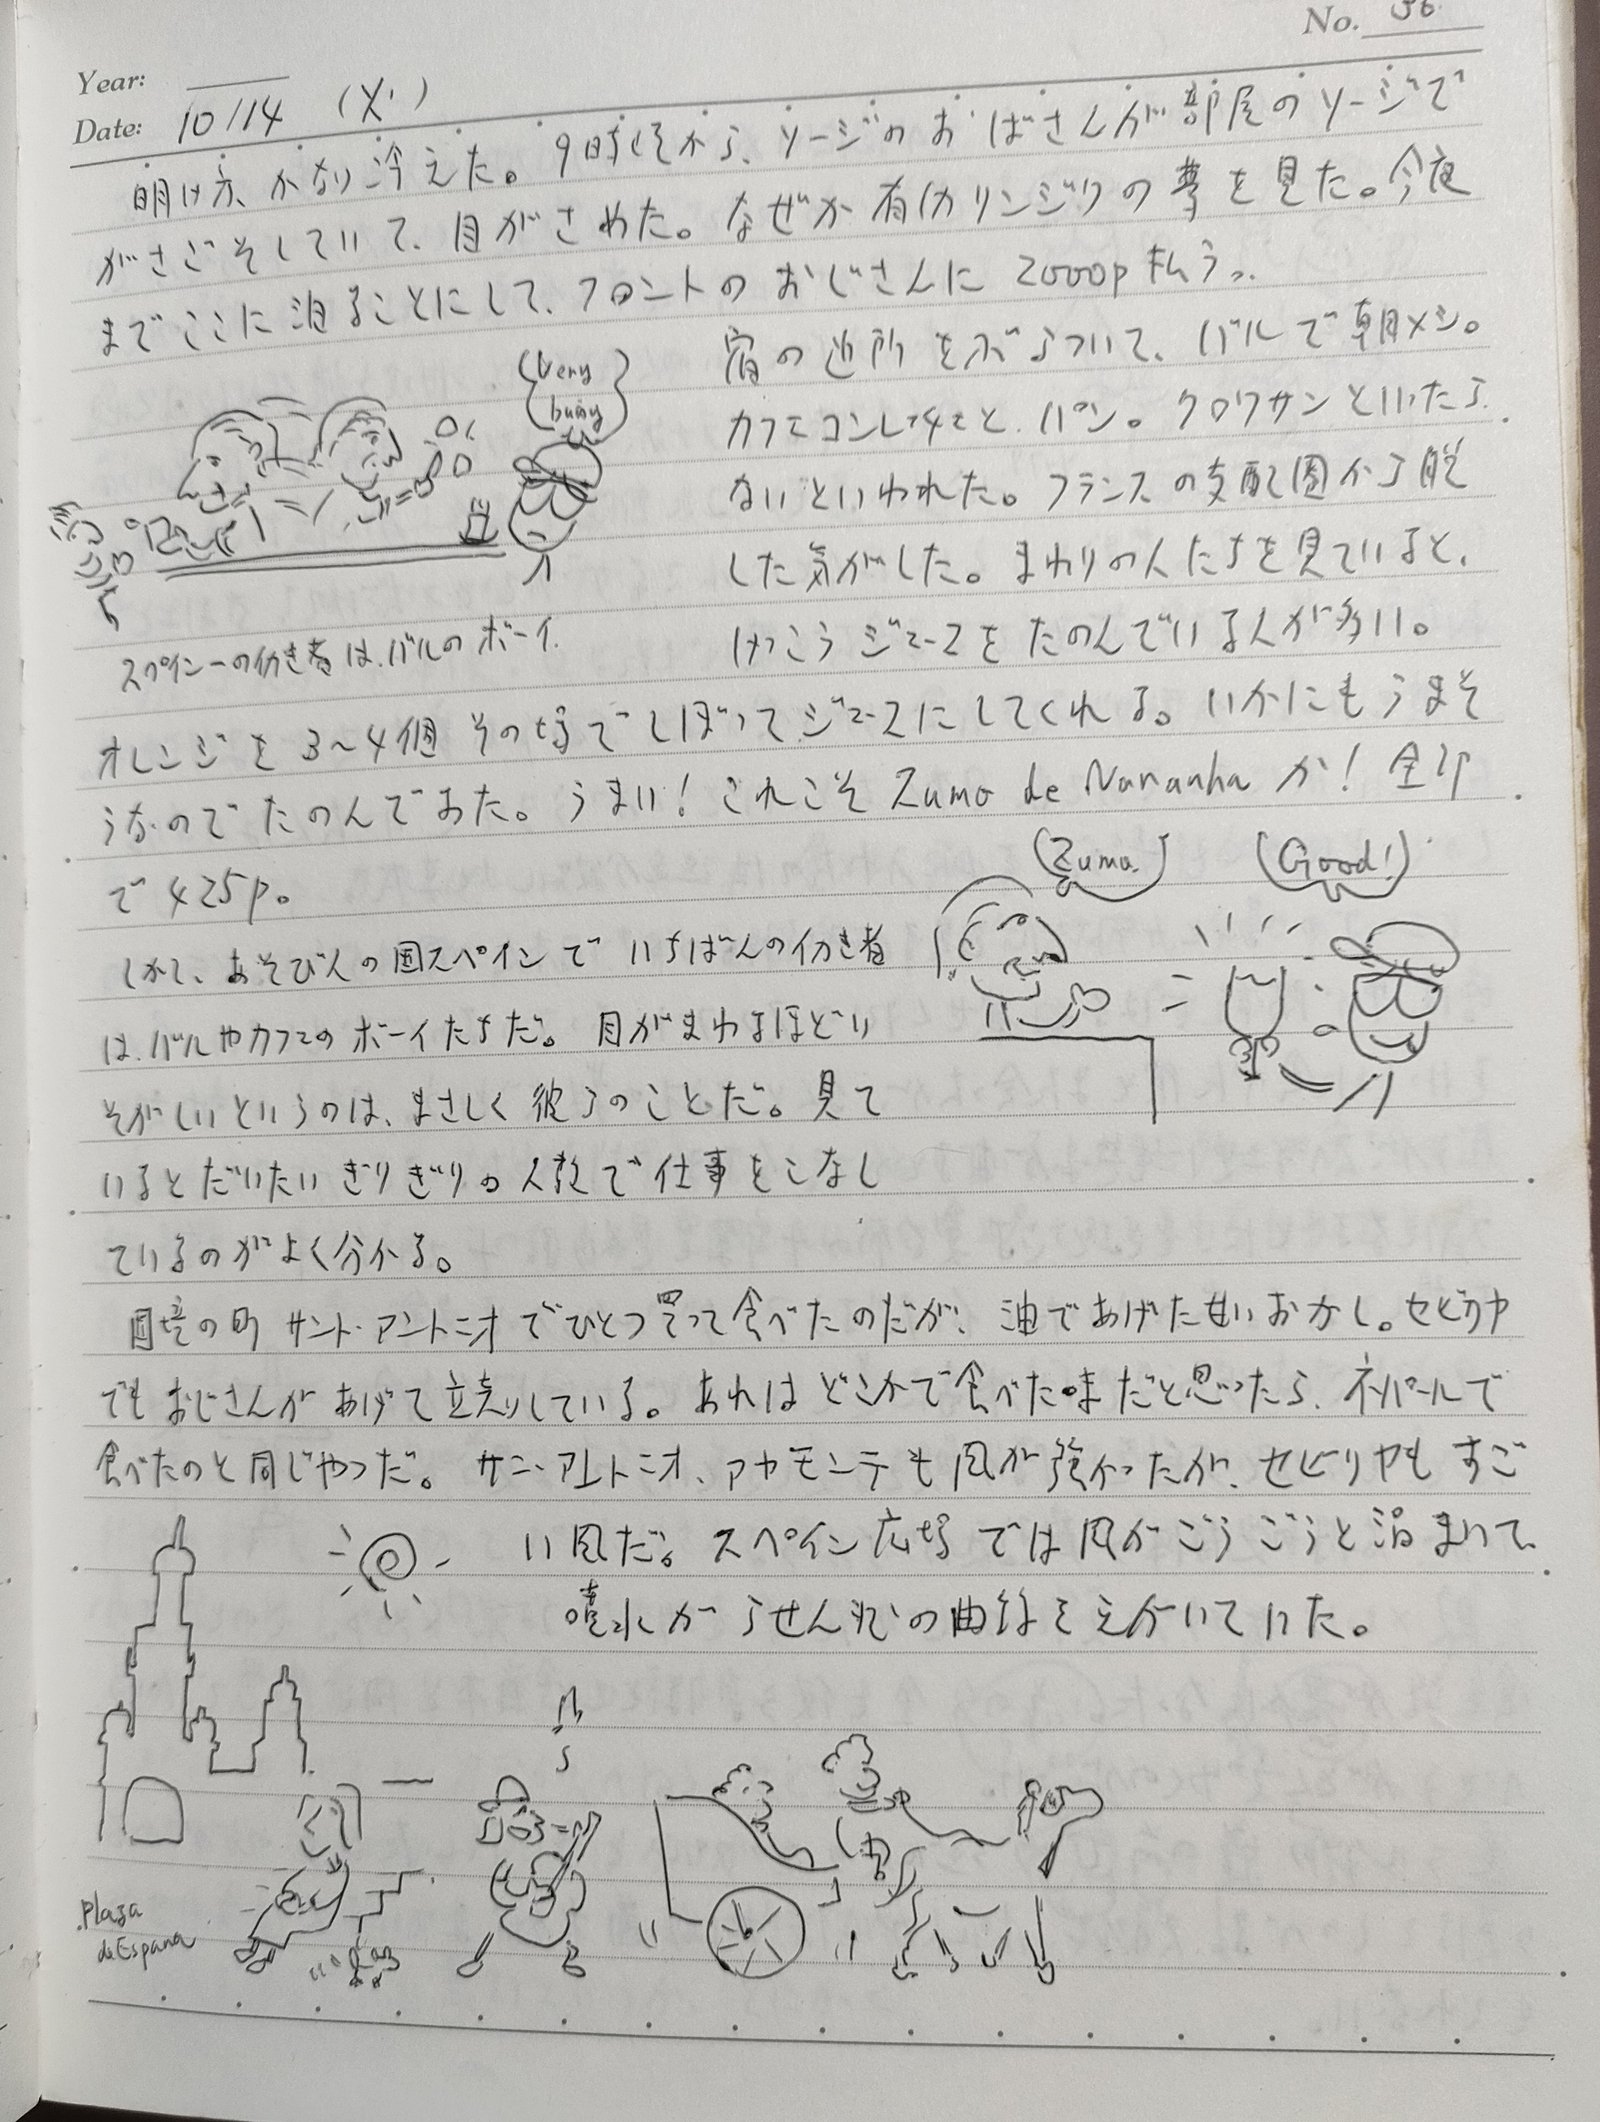 No. 36
Year:
Date: 10/14 (火)
明け方、かなり冷えた。9時ころから、ソージのおばさんが部屋のソージで
がさごそしていて、目がさめた。なぜか有休リンジクの夢を見た。今夜
までここに泊ることにして、フロントのおじさんに2000p払う。
宿の近所をぶらついて、バルで朝メシ。
カフェコンレチェと、パン。クロワサンといったら、
ないといわれた。フランスの支配圏から脱
した気がした。まわりの人たちを見ていると、
けっこうジュースをたのんでいる人が多い。
Very
busy
スペイン一の働き者は、バルのボーイ.
オレンジを3〜4個その場でしぼってジュースにしてくれる。いかにもうまそ
うなのでたのんでみた。うまい！これこそ Zumo de Naranha か！全部
で425p。
Zumo.
Good!
しかし、あそび人の国スペインでいちばんの働き者
は、バルやカフェのボーイたちだ。目がまわるほどい
そがしいというのは、まさしく彼らのことだ。見て
いるとだいたいぎりぎりの人数で仕事をこなし
ているのがよく分かる。
国境の町サント・アントニオでひとつ買って食べたのだが、油であげた甘いおかし。セビリヤ
でもおじさんがあげて立売りしている。あれはどこかで食べた味だと思ったら、ネパールで
食べたのと同じやつだ。サン・アントニオ、アヤモンテも風が強かったが、セビリヤもすご
い風だ。スペイン広場では風がごうごうと渦まいて、
噴水がらせん形の曲線をえがいていた。
Plaza
de Espana